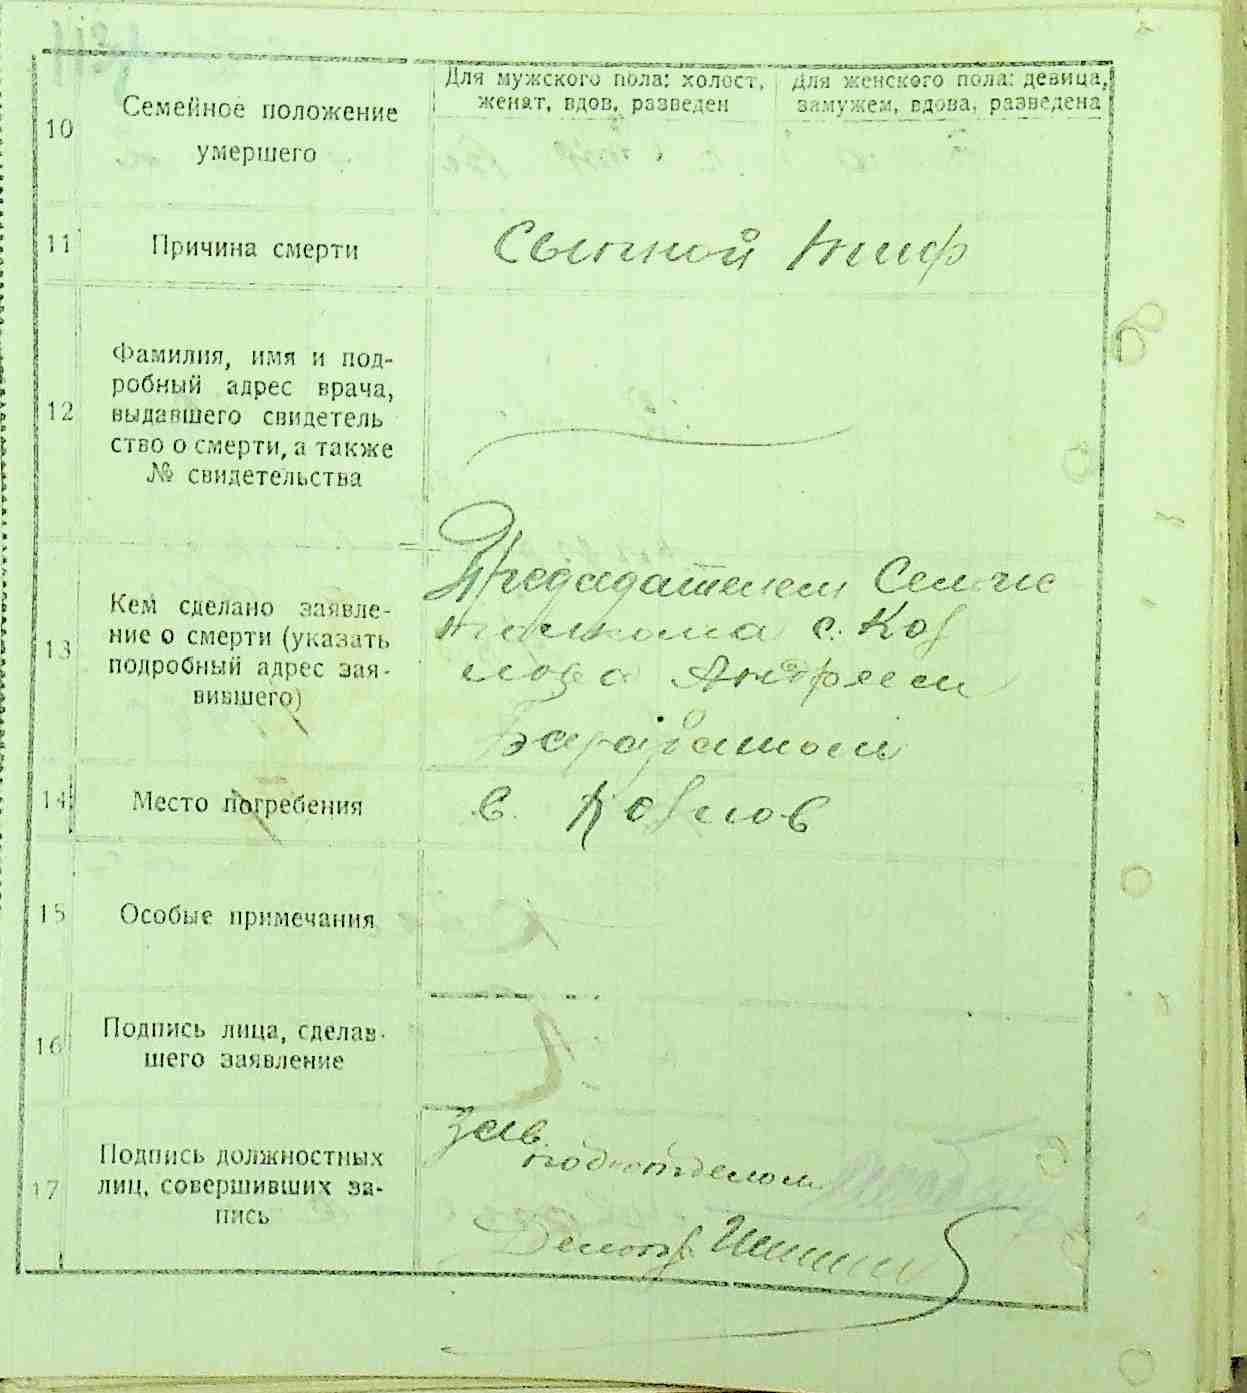 Для мужского пола: холост, женат, вдов, разведен
Для женского пола: девица, замужем, вдова, разведена
10
Семейное положение
умершего
11
Причина смерти
Сыпной тиф
12
Фамилия, имя и под-
робный адрес врача,
выдавшего свидетель
ство о смерти, а также
№ свидетельства
13
Кем сделано заявле-
ние о смерти (указать
подробный адрес зая-
вившего)
Предсадателем Сельис
полкома с. Коз
лова Андреем
14
Место погребения
в Козлов
15
Особые примечания
16
Подпись лица, сделав-
шего заявление
17
Подпись должностных
лиц, совершивших за-
пись
Зав.
подотделом
Делопр.